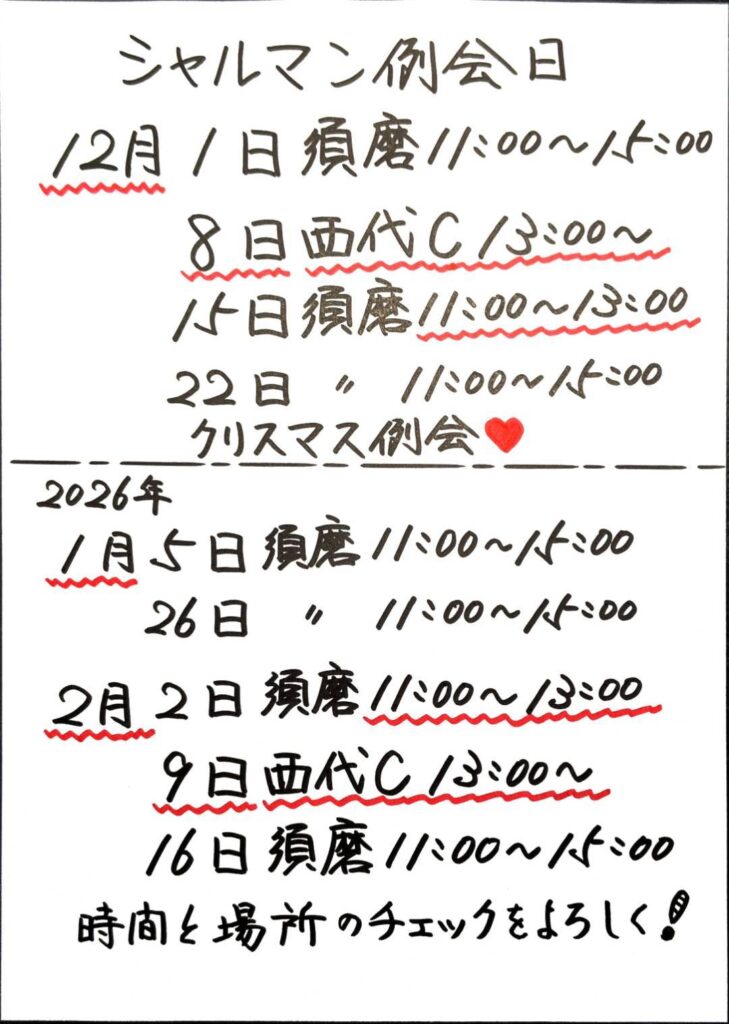 シャルマン例会日
12月 1日 須磨 11:00～15:00
8日 西代C 13:00～
15日 須磨 11:00～13:00
22日 〃 11:00～15:00
クリスマス例会♥
2026年
1月 5日 須磨 11:00～15:00
26日 〃 11:00～15:00
2月 2日 須磨 11:00～13:00
9日 西代C 13:00～
16日 須磨 11:00～15:00
時間と場所のチェックをよろしく!